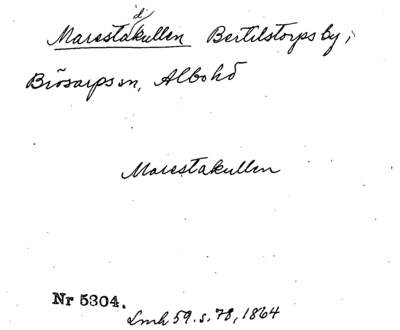 d
Marestakullen Bertilstorps by,
Brösarps sn, Albo hd
Marestakullen
Nr 5304.
Lmh 59. s. 78, 1864